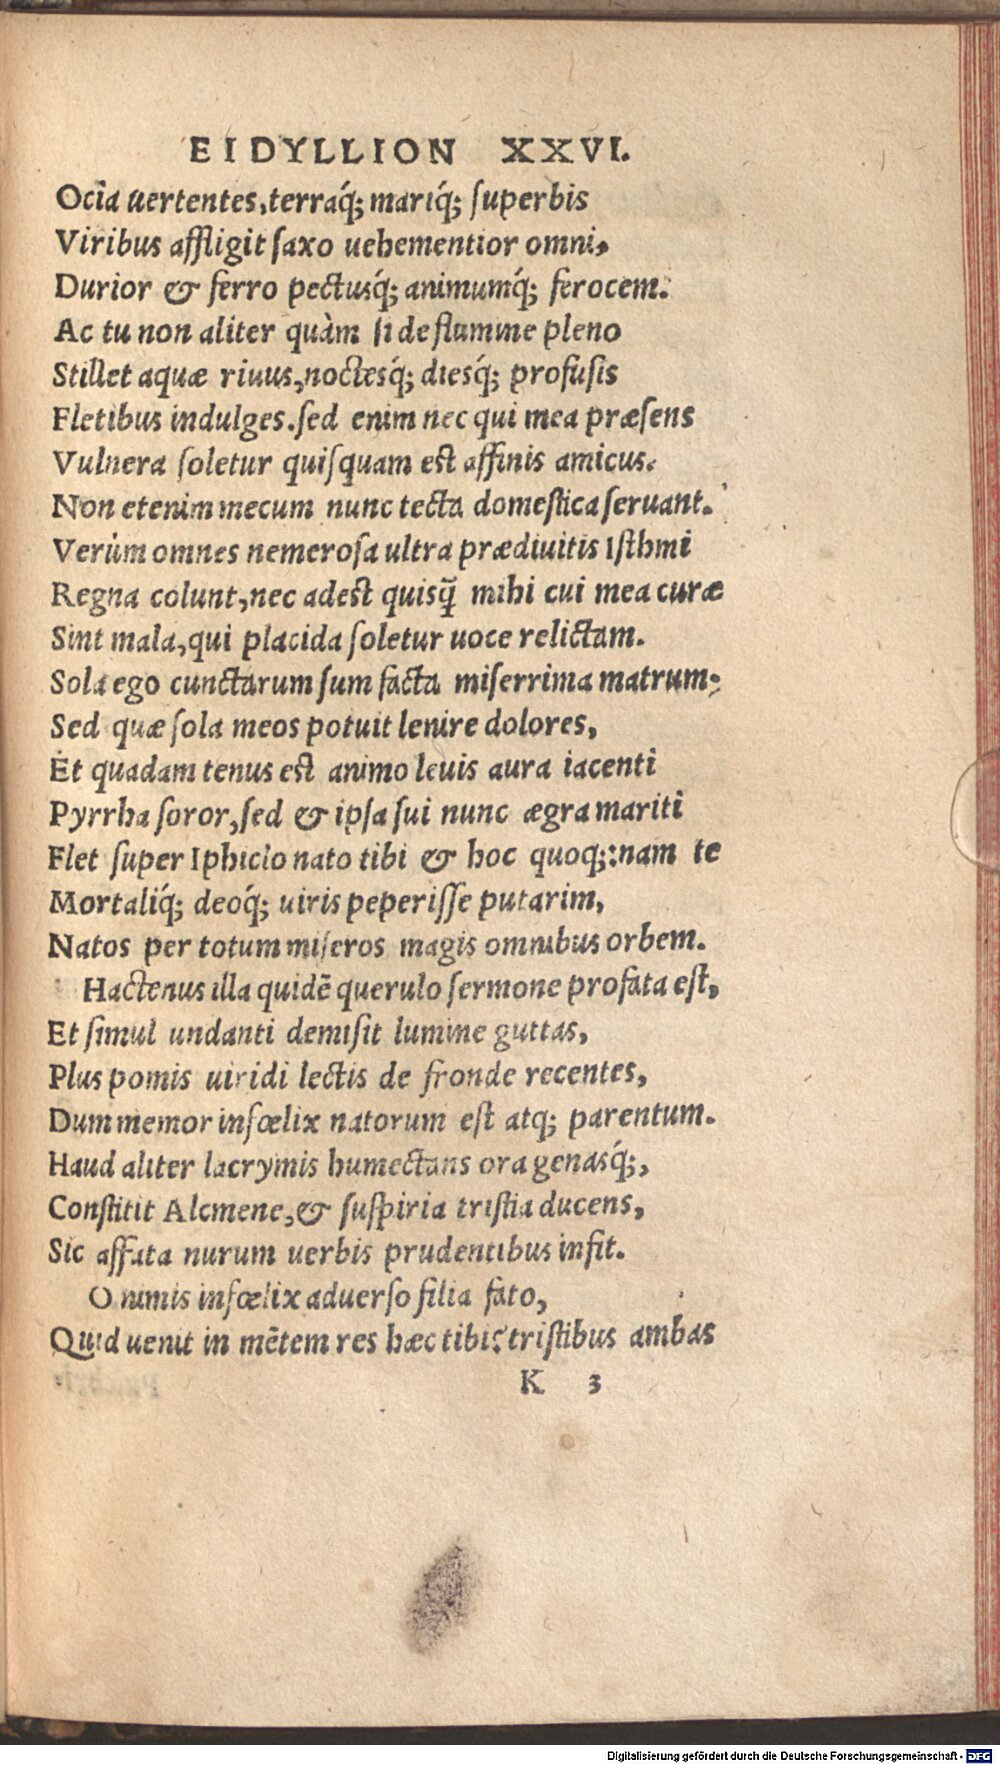 EIDYLLION XXVI.
Ocia uertentes, terraq́; mariq́; superbis
Viribus affligit saxo uehementior omni,
Durior & ferro pectusq́; animumq́; ferocem.
Ac tu non aliter quàm si de flumine pleno
Stillet aquæ riuus, noctesq́; diesq́; profusis
Fletibus indulges. sed enim nec qui mea præsens
Vulnera soletur quisquam est affinis amicus.
Non etenim mecum nunc tecta domestica seruant.
Verùm omnes nemerosa ultra prædiuitis Isthmi
Regna colunt, nec adest quisq̃ mihi cui mea curæ
Sint mala, qui placida soletur uoce relictam.
Sola ego cunctarum sum facta miserrima matrum;
Sed quæ sola meos potuit lenire dolores,
Et quadam tenus est animo leuis aura iacenti
Pyrrha soror, sed & ipsa sui nunc ægra mariti
Flet super Iphiclo nato tibi & hoc quoq;: nam te
Mortaliq́; deoq́; uiris peperisse putarim,
Natos per totum miseros magis omnibus orbem.
Hactenus illa quidē querulo sermone profata est,
Et simul undanti demisit lumine guttas,
Plus pomis uiridi lectis de fronde recentes,
Dum memor infœlix natorum est atq; parentum.
Haud aliter lacrymis humectans ora genasq́;,
Constitit Alcmene, & suspiria tristia ducens,
Sic affata nurum uerbis prudentibus infit.
O nimis infœlix aduerso filia fato,
Quid uenit in mētem res hæc tibi? tristibus ambas
K 3
Digitalisierung gefördert durch die Deutsche Forschungsgemeinschaft - DFG